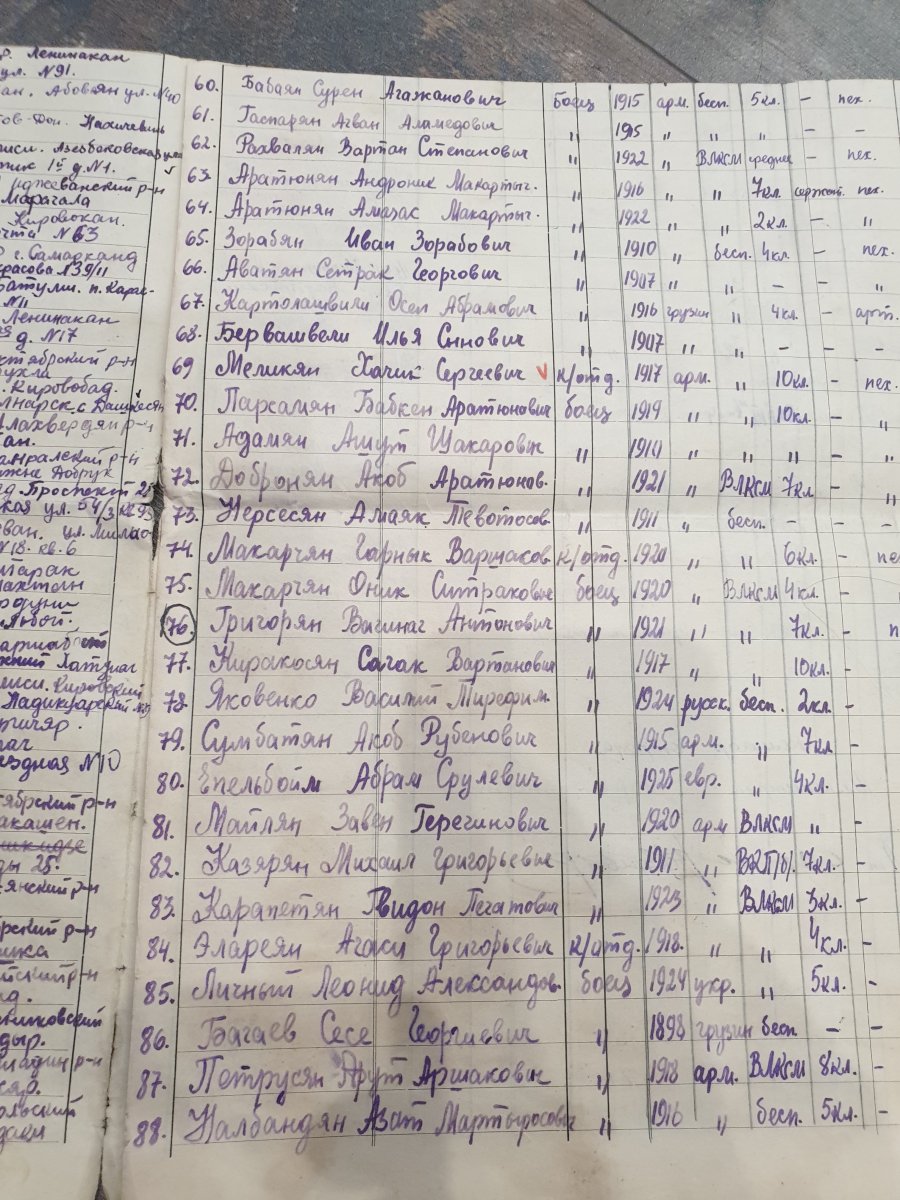 р. Ленинакан
ул. №91.
ан. Абовян ул. №40
ов-Дон. Нахичевань
д. №1.
р-н
Марагала
Кировокан.
чта №63
г. Самарканд
расова №39/11
п. Карак-
№11
Ленинакан
д. №17
ктябрский р-н
. Кировобад.
р-н
ан.
р-н
Проспект
кая ул. 54/3 кв 93
ван. ул.
№18. кв. 6
Кировский
ездная №10
ябрский р-н
акашен.
ды 25.
янский р-н
рский р-н
ский р-н
60. Бабаян Сурен Агажанович боец 1915 арм. бесп. 5кл. – пех.
61. Гаспарян Агван Аламедович " 195 " " " – –
62. Рахвалян Вартан Степанович " 1922 " ВЛКСМ среднее – пех.
63. Аратюнян Андроник Макартыч. " 1916 " " 7кл. сержант. пех.
64. Аратюнян Амаяс Макартыч. " 1922 " " 2кл. – "
65. Зорабян Иван Зорабович " 1910 " бесп. 4кл. – пех.
66. Аватян Сетрак Георгович " 1907 " " – – "
67. Картолашвили Осеп Абрамович " 1916 грузин " 4кл. – арт.
68. Бервашвели Илья Снович " 1907 " " – – –
69 Меликян Хачик Сергеевич к/отд. 1917 арм. " 10кл. – пех.
70. Парсамян Бабкен Аратюнович боец 1919 " " 10кл. – "
71. Адамян Ашут Цакарович " 1914 " " " – "
72. Добронян Акоб Аратюнов. " 1921 " ВЛКСМ 7кл. – "
73. Нерсесян Амаяк Тевотосов. " 1911 " бесп. – – –
74. Макарчян Гарнык Варшаков. к/отд. 1920 " " 6кл. – пе
75. Макарчян Оник Ситракович боец 1920 " ВЛКСМ 4кл. –
76. Григорян Вагинаг Антонович " 1921 " " 7кл. – п
77. Киракосян Сагак Вартанович " 1917 " " 10кл. –
78. Яковенко Василий Мирефим. " 1924 русск. бесп. 2кл. –
79. Сумбатян Акоб Рубенович " 1915 арм. " 7кл –
80. Епельбойм Абрам Срулевич " 1925 евр. " 4кл. –
81. Маилян Завен Герегинович " 1920 арм ВЛКСМ " –
82. Казярян Михаил Григорьевич " 1911 " ВКП/б/. 7кл. –
83. Карапетян Гвидон Гегатович " 1923 " ВЛКСМ 3кл. –
84. Элареян Агаси Григорьевич к/отд. 1918. " " 4кл. –
85. Личный Леонид Александов. боец 1924 укр. " 5кл. –
86. Багаев Сесе Георгиевич " 1898 грузин бесп – –
87. Петрусян Арут Аршакович " 1918 арм. ВЛКСМ 8кл. –
88. Налбандян Азат Мартыросович " 1916 " бесп. 5кл. –